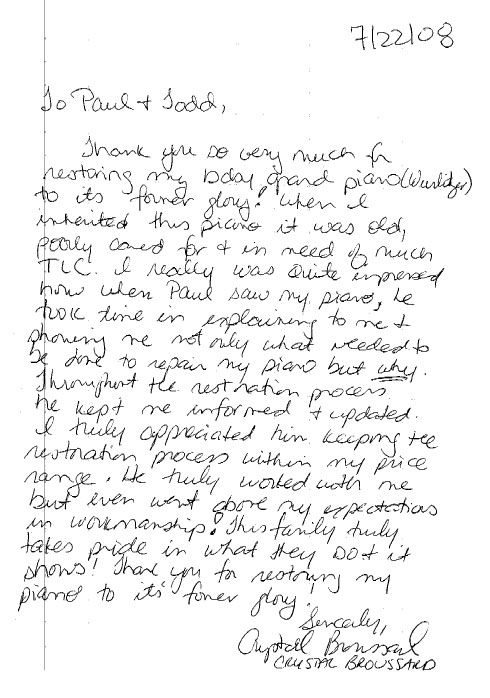 7/22/08
To Paul + Todd,
Thank you so very much for
restoring my baby grand piano (Wurlitzer)
to its' former glory! When I
inherited this piano it was old,
poorly cared for + in need of much
TLC. I really was quite impressed
how when Paul saw my piano, he
took time in explaining to me +
showing me not only what needed to
be done to repair my piano but why.
Throughout the restoration process
he kept me informed + updated.
I truly appreciated him keeping the
restoration process within my price
range. He truly worked with me
but even went above my expectations
in workmanship! This family truly
takes pride in what they DO + it
shows! Thank you for restoring my
piano to its' former glory!
Sincerely,
Crystal Broussard
CRYSTAL BROUSSARD